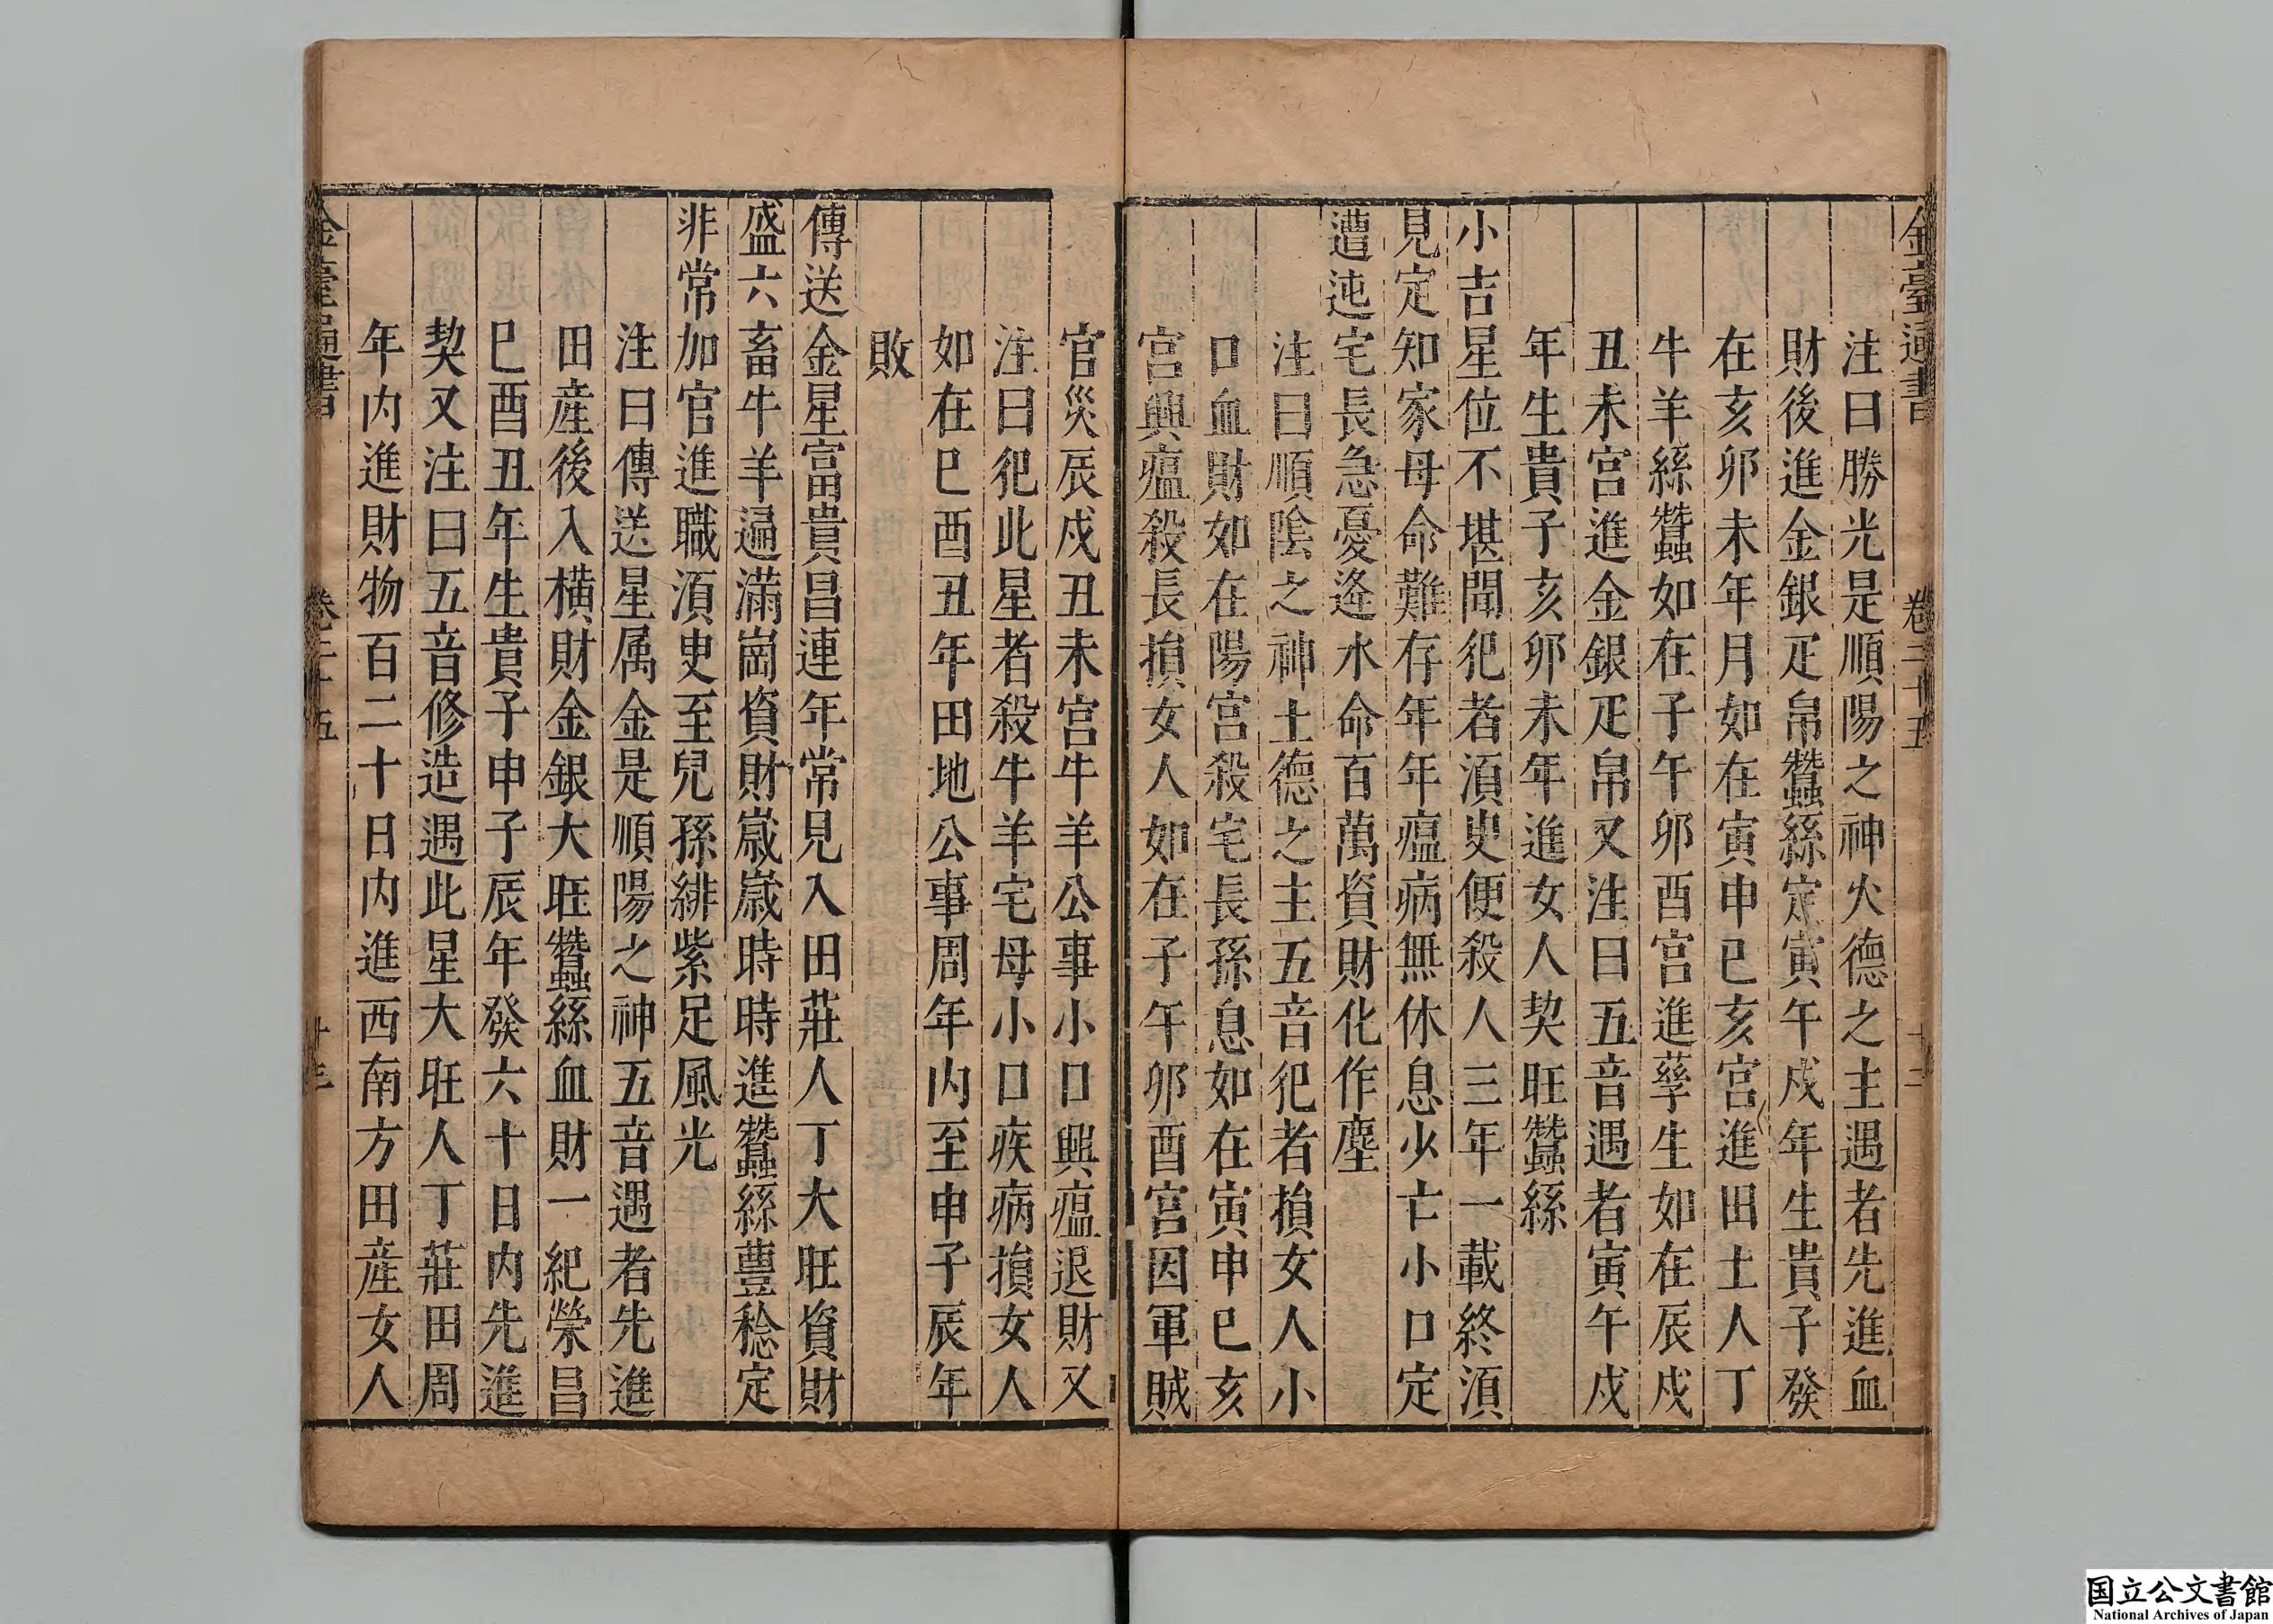 金臺通書　卷二十五　十二
注曰勝光是順陽之神火德之主遇者先進血
財後進金銀疋帛蠶絲定寅午戌年生貴子發
在亥卯未年月如在寅申巳亥宮進田土人丁
牛羊絲蠶如在子午卯酉宮進孳生如在辰戌
丑未宮進金銀疋帛又注曰五音遇者寅午戌
年生貴子亥卯未年進女人契旺蠶絲
小吉星位不堪聞犯者湏臾便殺人三年一載終湏
見定知家母命難存年年瘟病無休息少亡小口定
遭迍宅長急憂逢水命百萬資財化作塵
注曰順陰之神土德之主五音犯者損女人小
口血財如在陽宮殺宅長孫息如在寅申巳亥
宮興瘟殺長損女人如在子午卯酉宮因軍賊
官災辰戌丑未宮牛羊公事小口興瘟退財又
注曰犯此星者殺牛羊宅母小口疾病損女人
如在巳酉丑年田地公事周年内至申子辰年
敗
傳送金星富貴昌連年常見入田莊人丁大旺資財
盛六畜牛羊遍滿崗資財嵗嵗時時進蠶絲豊稔定
非常加官進職湏臾至兒孫緋紫足風光
注曰傳送星属金是順陽之神五音遇者先進
田産後入横財金銀大旺蠶絲血財一紀榮昌
巳酉丑年生貴子申子辰年發六十日内先進
契又注曰五音修造遇此星大旺人丁莊田周
年内進財物百二十日内進西南方田産女人
金臺通書　卷二十五　十三
国立公文書館
National Archives of Japan